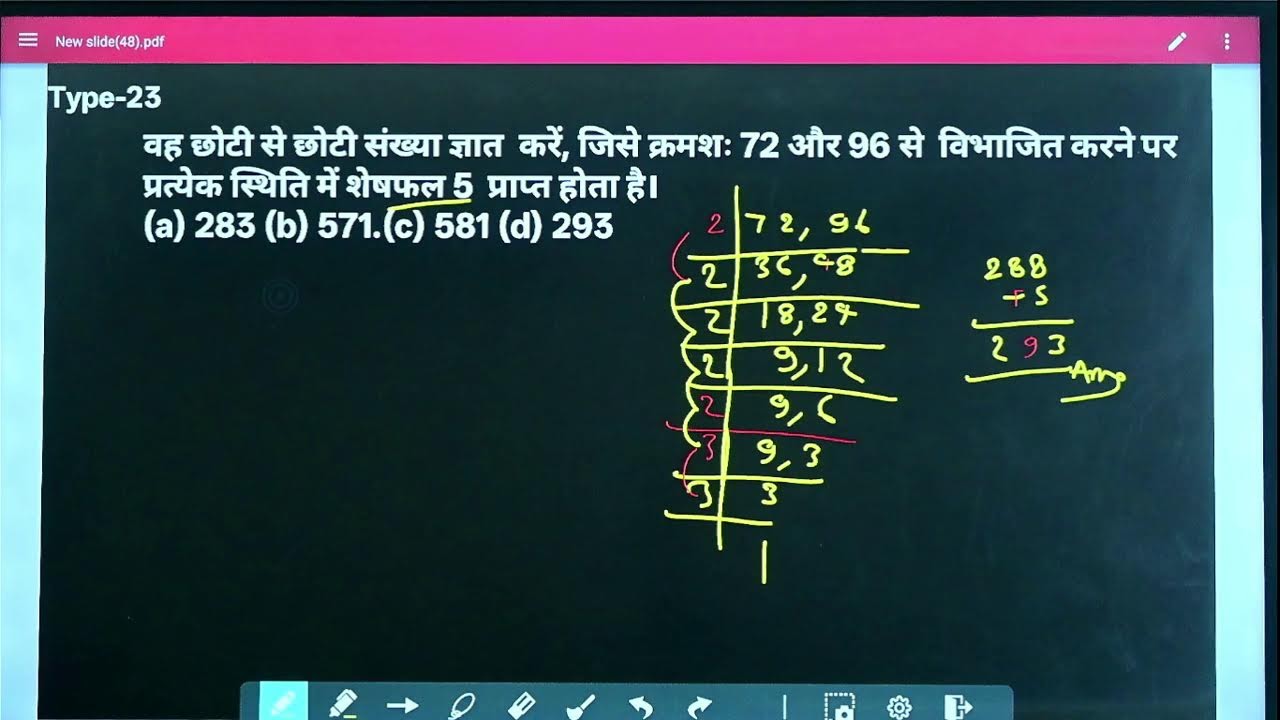 New slide(48).pdf
Type-23
वह छोटी से छोटी संख्या ज्ञात करें, जिसे क्रमशः 72 और 96 से विभाजित करने पर
प्रत्येक स्थिति में शेषफल 5 प्राप्त होता है।
(a) 283 (b) 571.(c) 581 (d) 293
2 72, 96
2 36, 48
2 18, 24
2 9, 12
2 9, 6
3 9, 3
3 3
1
288
+5
293
Ans